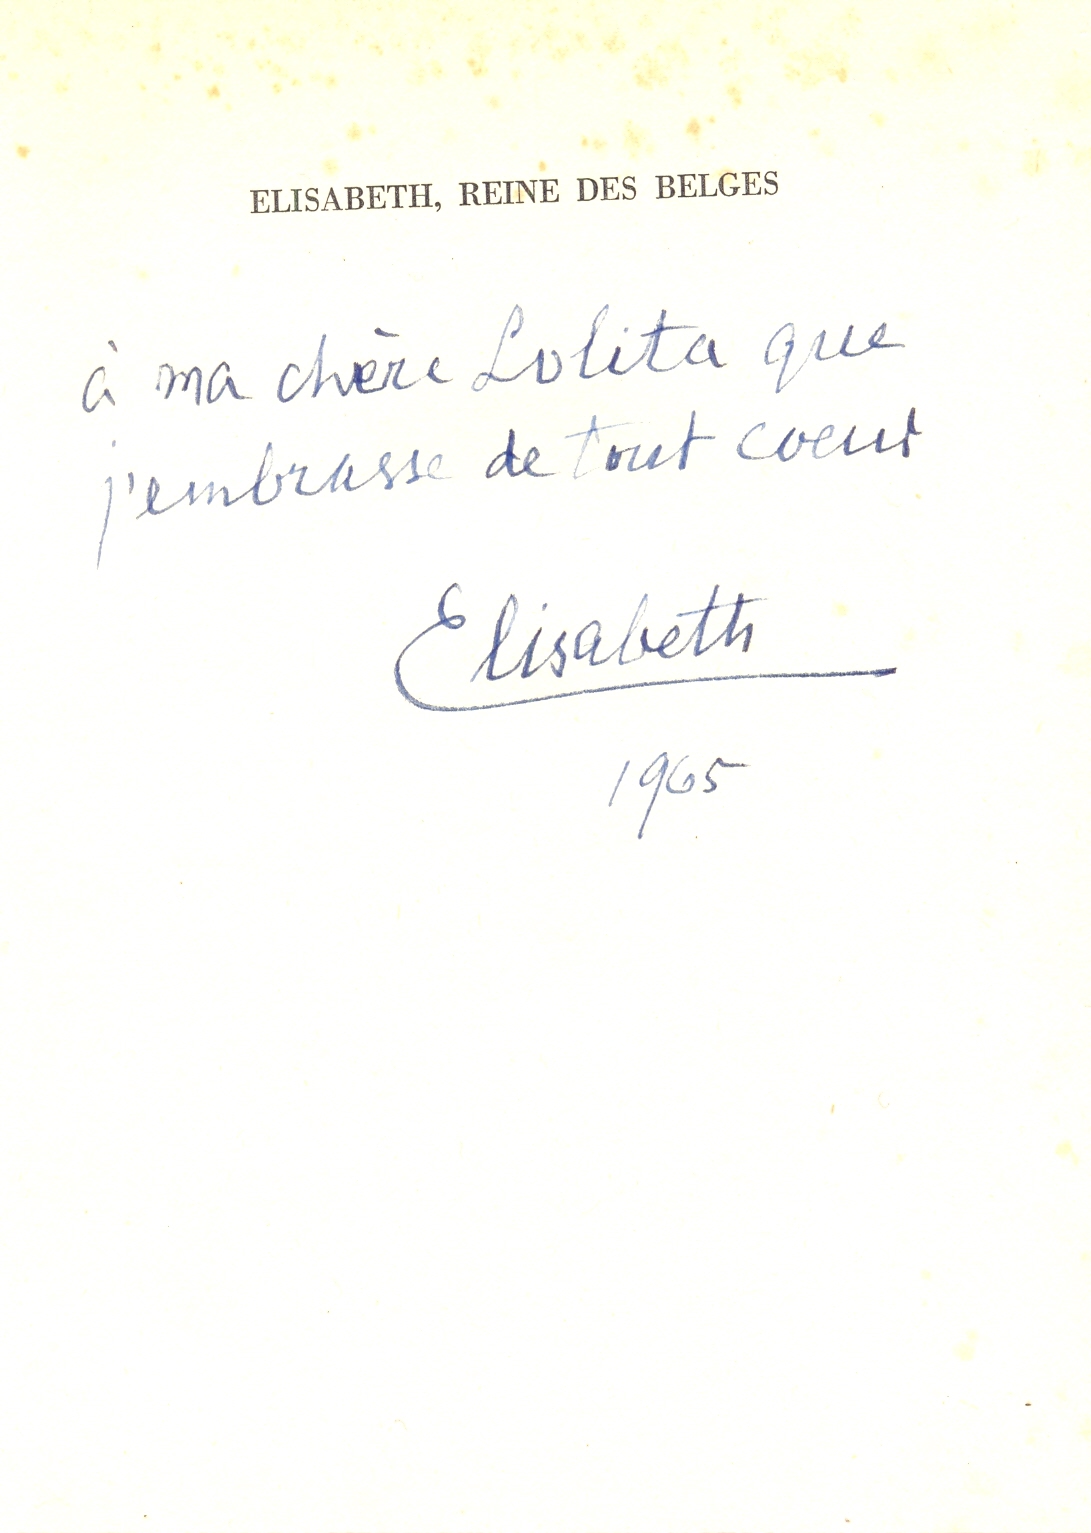 ELISABETH, REINE DES BELGES
à ma chère Lolita que
j'embrasse de tout coeur
Elisabeth
1965